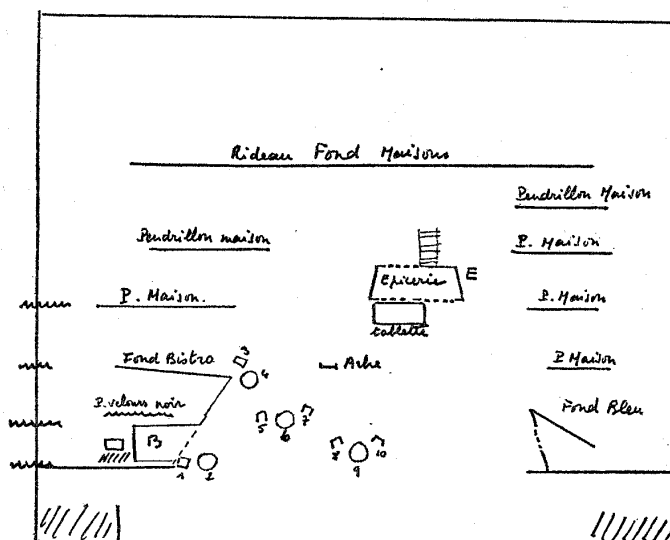 Rideau Fond Maisons
Pendrillon Maison
Pendrillon maison
P. Maison
Epicerie
E
P. Maison.
P. Maison
tablette
3
Fond Bistro
Arbre
P Maison
4
P. velours noir
Fond Bleu
5
7
6
B
8
10
1
2
9